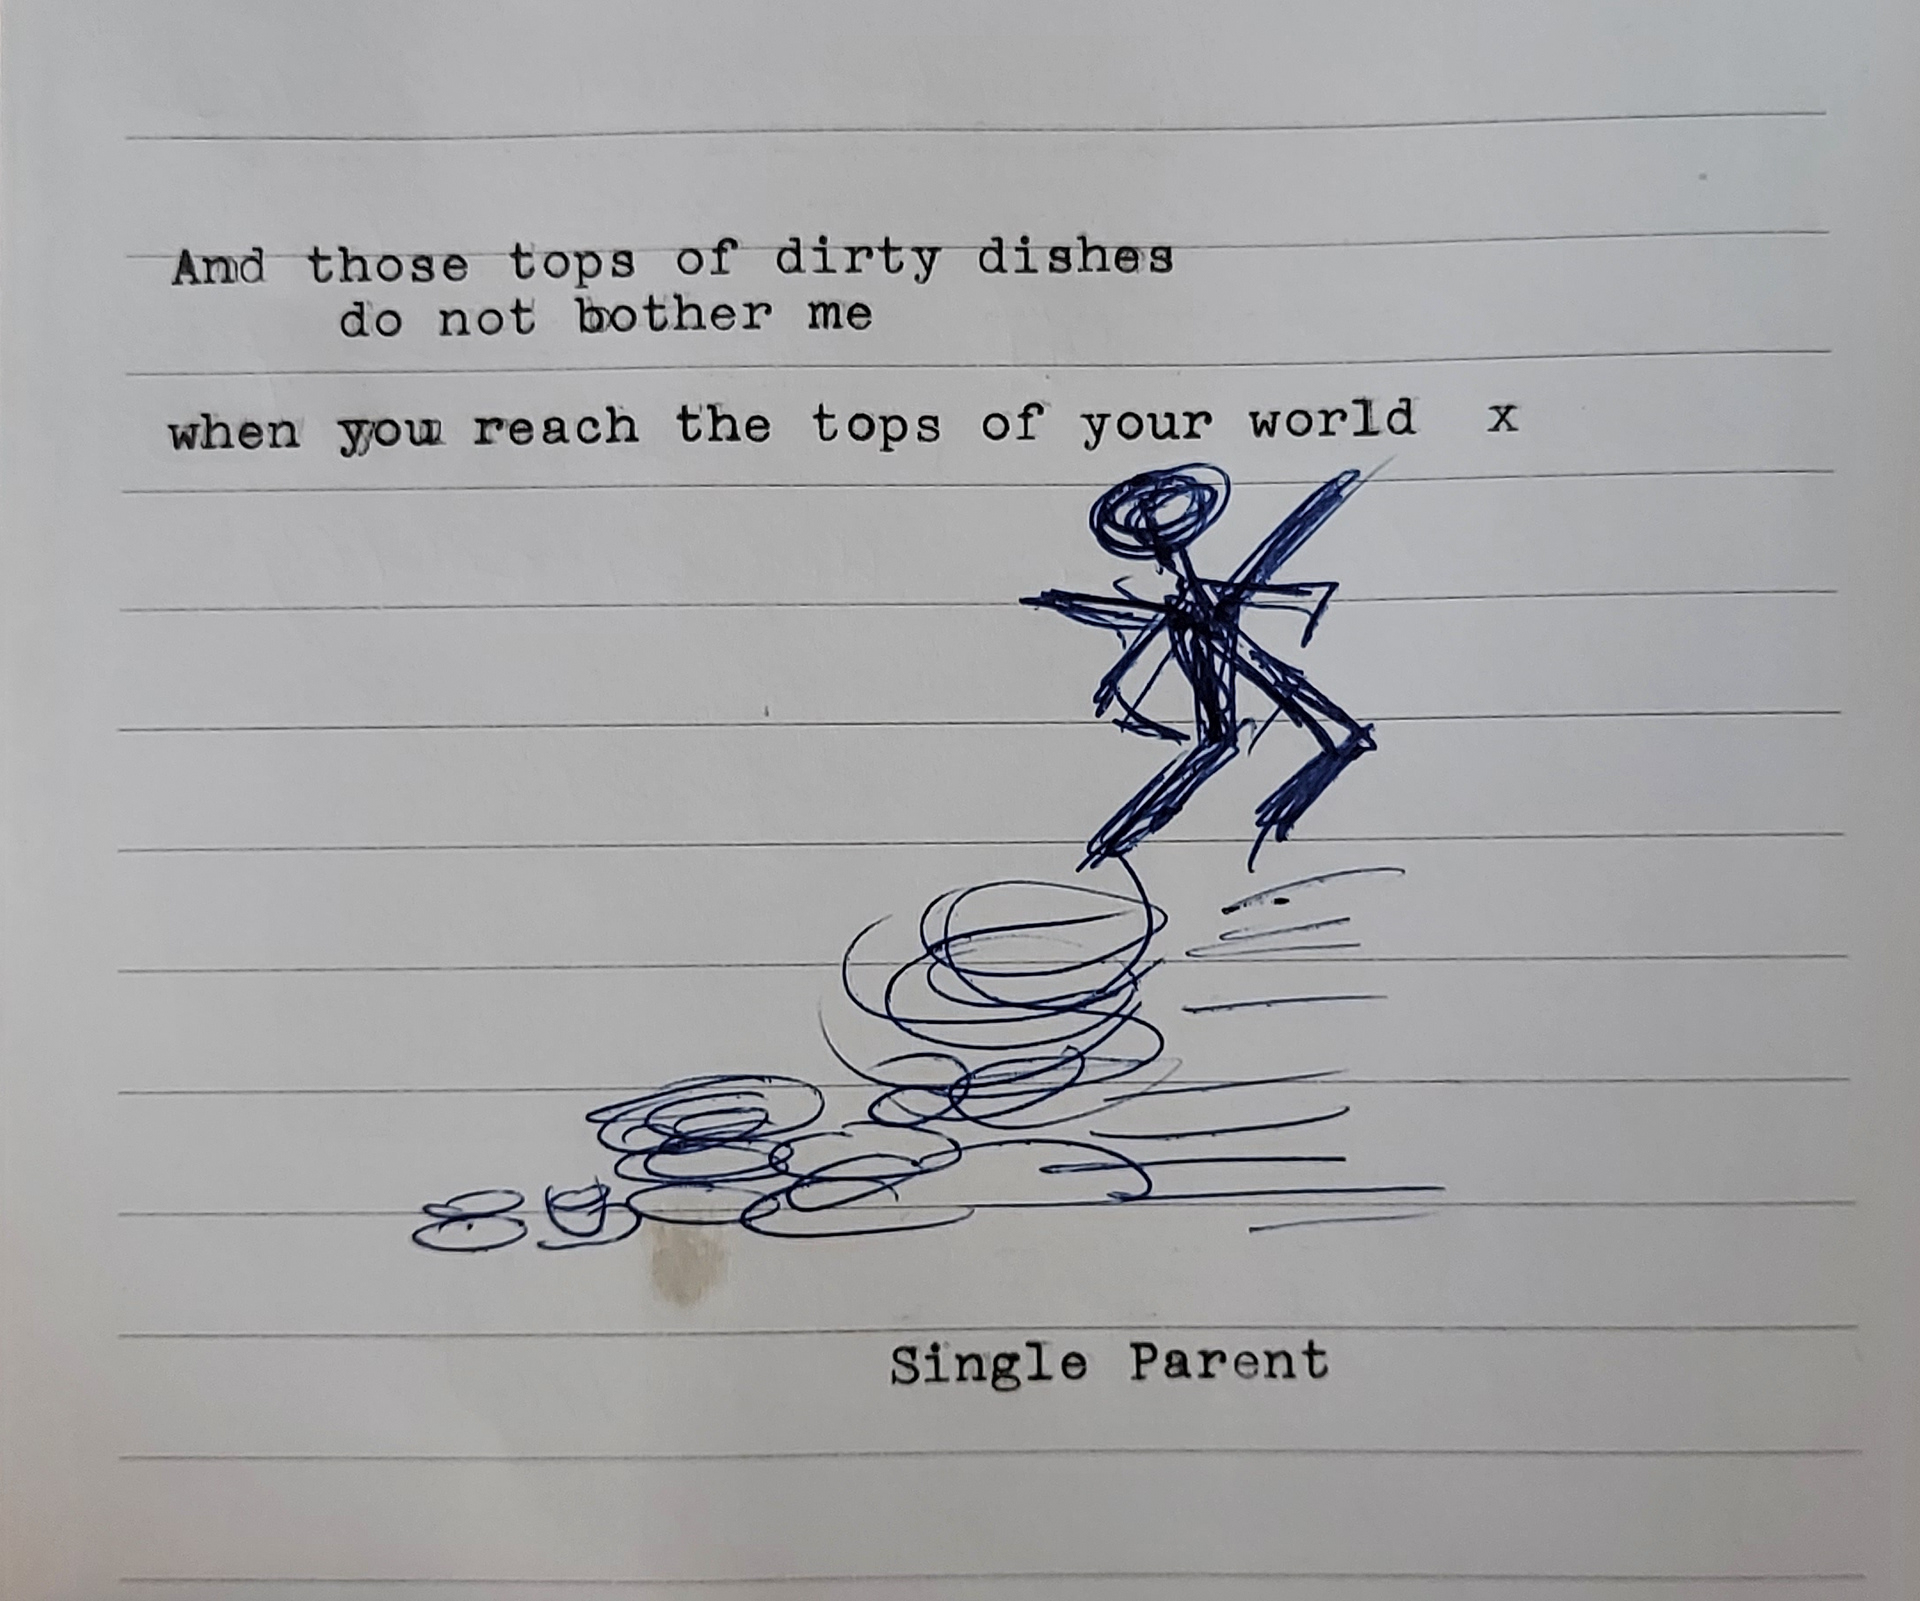 And those tops of dirty dishes
do not bother me
when you reach the tops of your world x
Single Parent